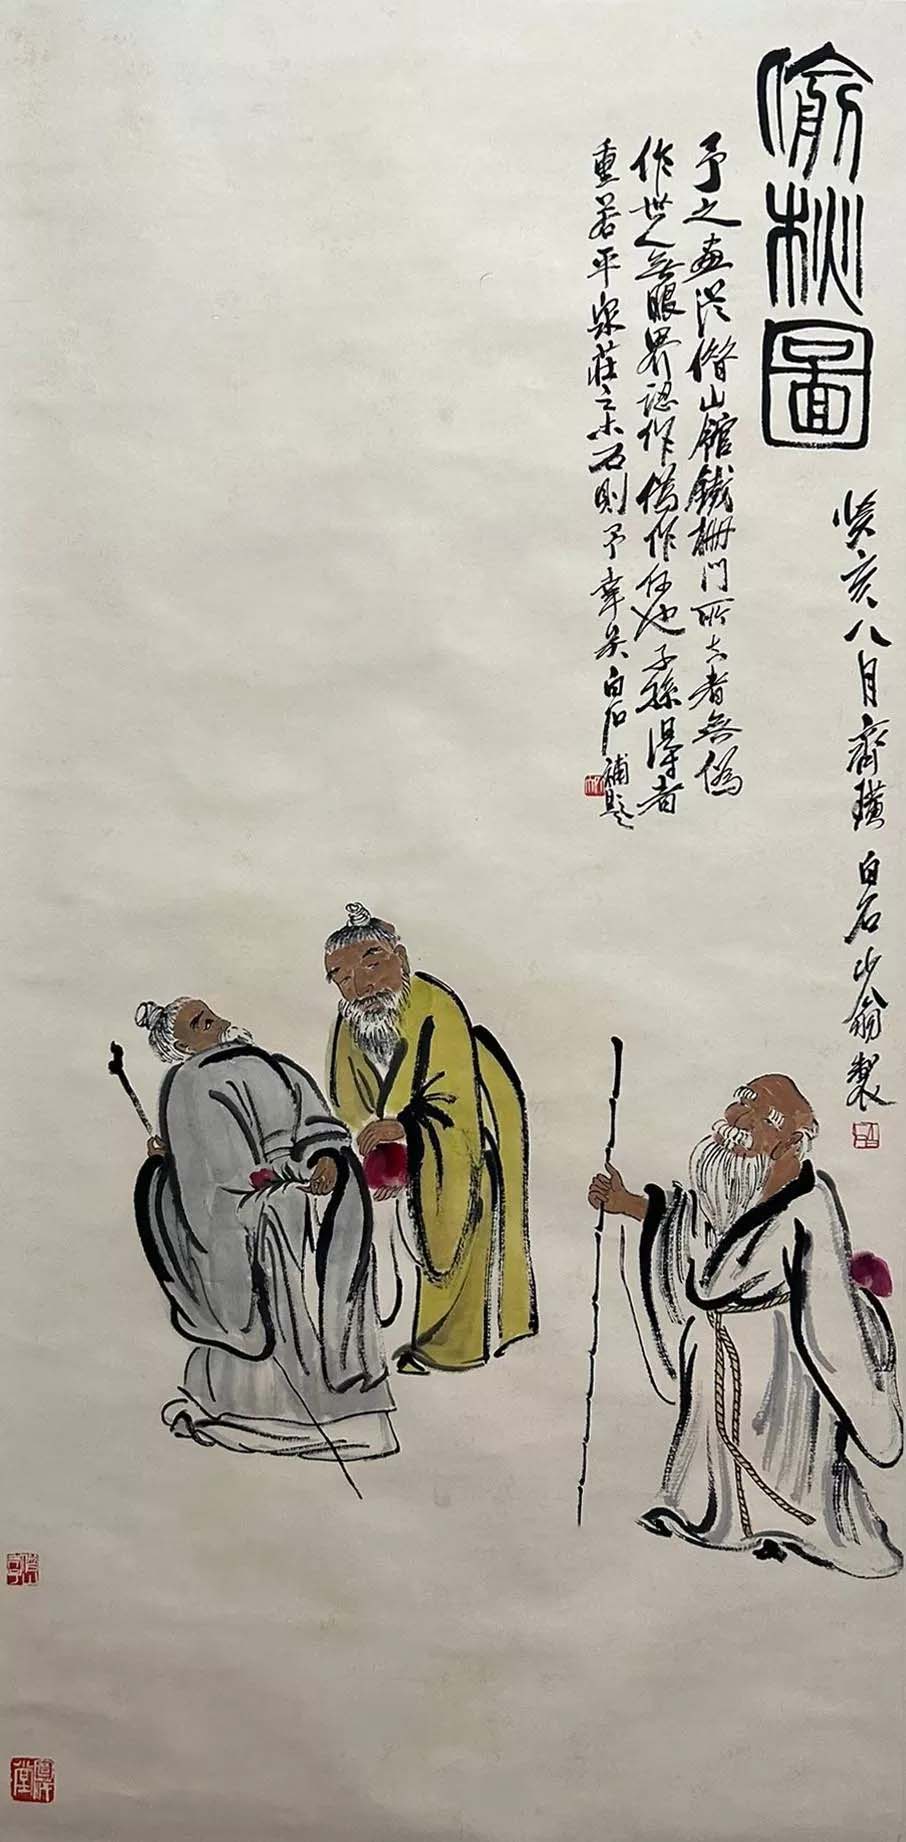 偷桃圖
癸亥八月齊璜白石山翁製
予之畫從借山館鐵柵門所去者無偽
作世人無眼界認作偽作任他子孫得者
重若平泉莊之木石則予幸矣白石補題